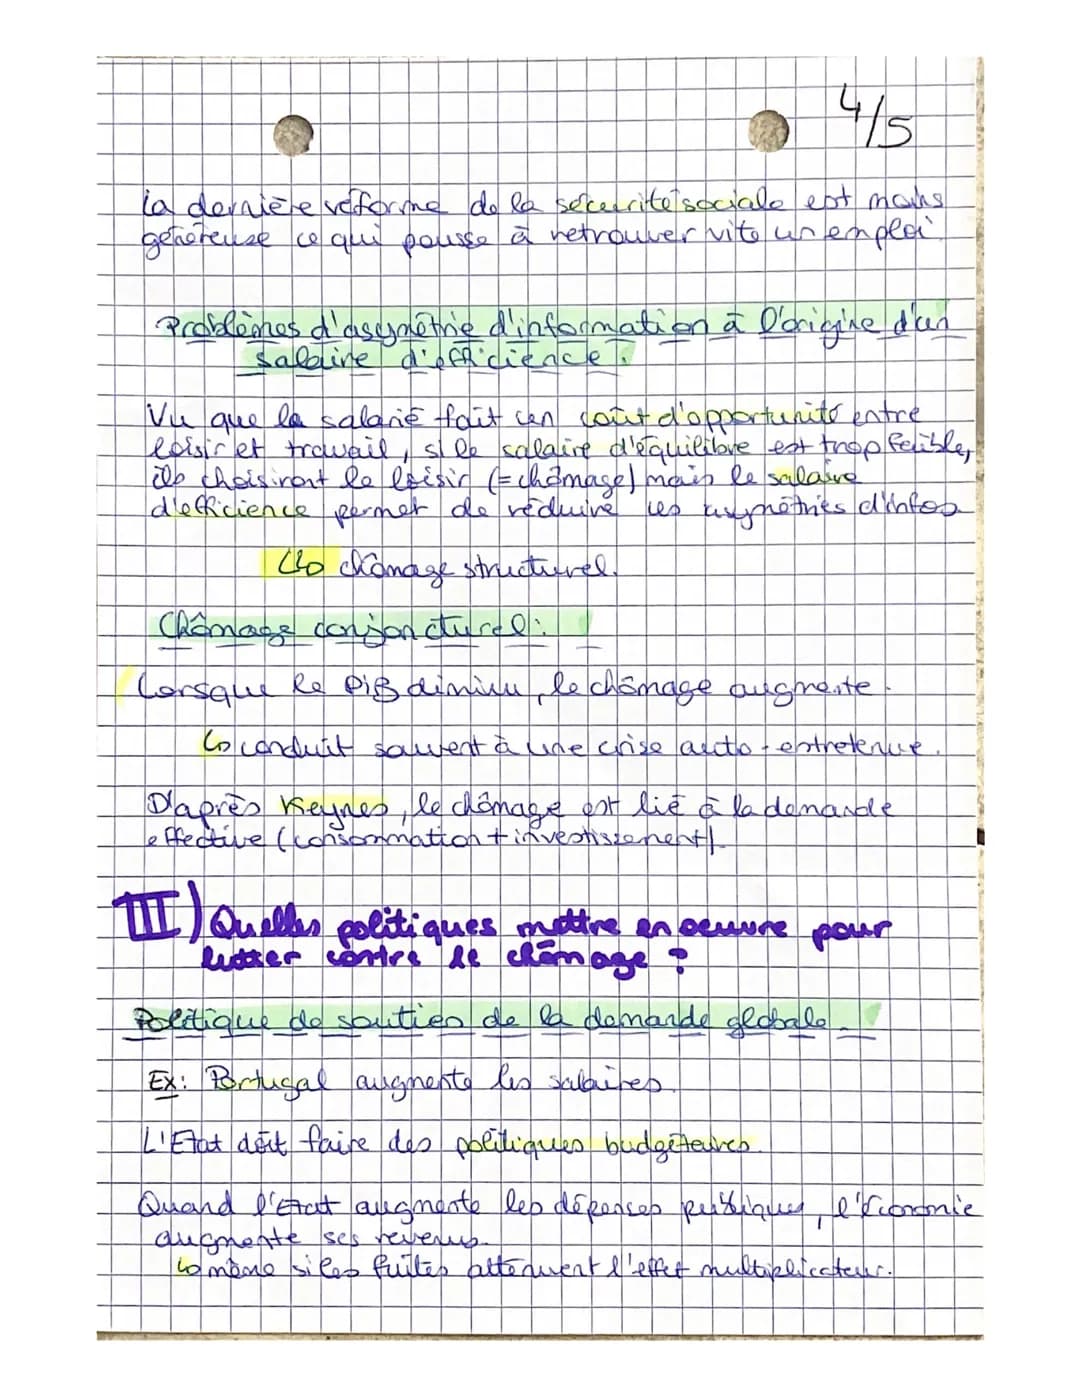 4/5
La dernière réforme de la sécurité sociale est moins
généreuse ce qui pousse à retrouver vite un emploi.
Problèmes d'asymétrie d'information à l'origine d'un
salaire d'efficience :
Vu que le salarié fait un coût d'opportunité entre
loisir et travail, si le salaire d'équilibre est trop faible,
ils choisiront le loisir (= chômage) mais le salaire
d'efficience permet de réduire ces asymétries d'infos
↳ chômage structurel.
Chômage conjoncturel :
Lorsque le PIB diminu, le chômage augmente.
↳ conduit souvent à une crise auto-entretenue.
D'après Keynes, le chômage est lié à la demande
effective (consommation + investissement)
III) Quelles politiques mettre en oeuvre pour
lutter contre le chômage ?
Politique de soutien de la demande globale.
Ex: Portugal augmente les salaires.
L'Etat doit faire des politiques budgétaires.
Quand l'Etat augmente les dépenses publiques, l'économie
augmente ses revenus.
↳ même si les fuites atténuent l'effet multiplicateur.